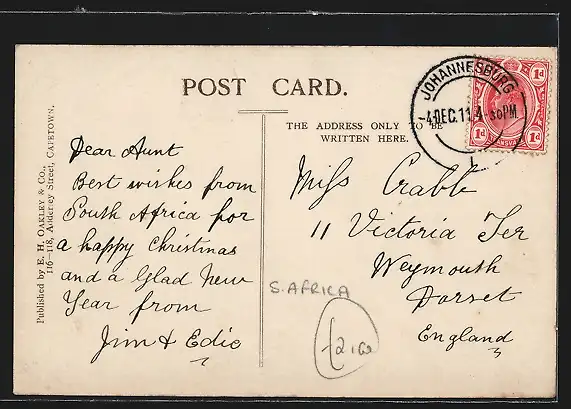 POST CARD.
THE ADDRESS ONLY TO BE
WRITTEN HERE.
JOHANNESBURG
-4 DEC. 11 4-30 PM
1
1d 1d
1d 1d
TRANSVAAL
Published by E. H. OAKLEY & Co.,
116-118, Adderley Street, CAPETOWN.
Dear Aunt
Best wishes from
South Africa for
a happy Christmas
and a Glad New
Year from
Jim & Edie
Miss Crabb
11 Victoria Ter
Weymouth
Dorset
England
S. AFRICA